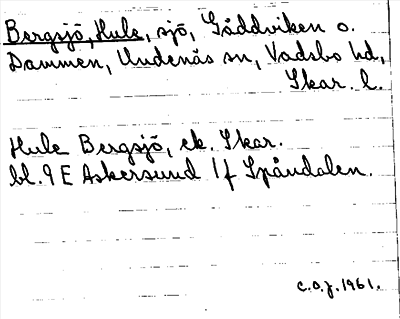 Bergsjö, Hule, sjö, Gäddviken o.
Dammen, Undenäs sn, Vadsbo hd,
Skar. l.
Hule Bergsjö, ek. Skar.
bl. 9 E Askersund 1f Spåndalen.
c.o.j. 1961.